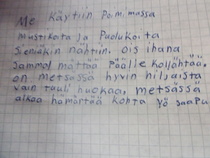 Me käytiin poimimassa
mustikoita ja puolukoita
sieniäkin nähtiin. Ois ihana
sammal mättää päälle köllähtää,
on metsässä hyvin hiljaista
vain tuuli huokaa, metsässä
alkaa hämärtää kohta yö saapu